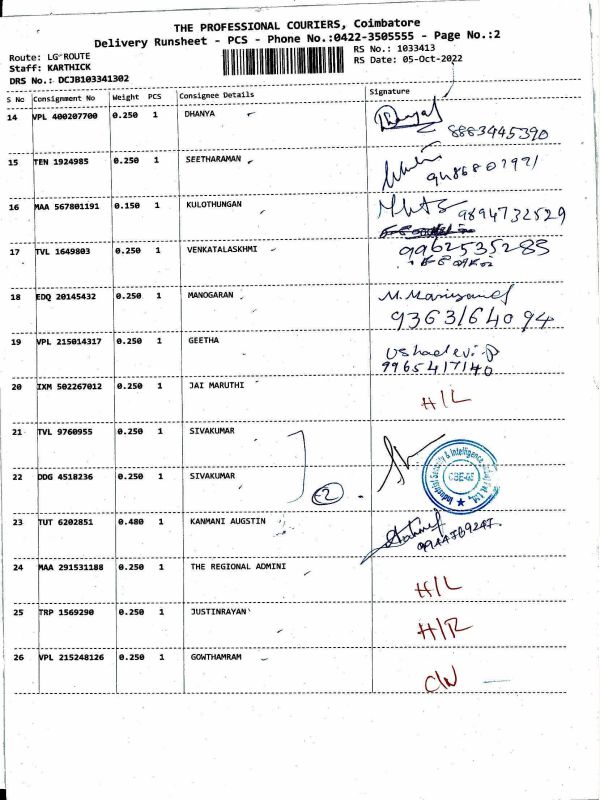 THE PROFESSIONAL COURIERS, Coimbatore
Delivery Runsheet - PCS - Phone No.:0422-3505555 - Page No.:2
Route: LG ROUTE
RS No.: 1033413
Staff: KARTHICK
RS Date: 05-Oct-2022
DRS No.: DCJB103341302
S No Consignment No Weight PCS Consignee Details Signature
14 VPL 400207700 0.250 1 DHANYA
8883445390
15 TEN 1924985 0.250 1 SEETHARAMAN
9486807971
16 MAA 567801191 0.150 1 KULOTHUNGAN 9894732529
17 TVL 1649803 0.250 1 VENKATALASKHMI 9962535283
18 EDQ 20145432 0.250 1 MANOGARAN
9363164094
19 VPL 215014317 0.250 1 GEETHA Ushadevi.P
9965417140
20 IXM 502267012 0.250 1 JAI MARUTHI H/L
21 TVL 9760955 0.250 1 SIVAKUMAR
22 DDG 4518236 0.250 1 SIVAKUMAR
2
23 TUT 6202851 0.480 1 KANMANI AUGSTIN
24 MAA 291531188 0.250 1 THE REGIONAL ADMINI H/L
25 TRP 1569290 0.250 1 JUSTINRAYAN H/R
26 VPL 215248126 0.250 1 GOWTHAMRAM C/N